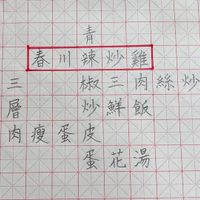 青
春川辣炒雞
三 椒三肉絲炒
層 炒鮮飯
肉瘦蛋皮
蛋花湯